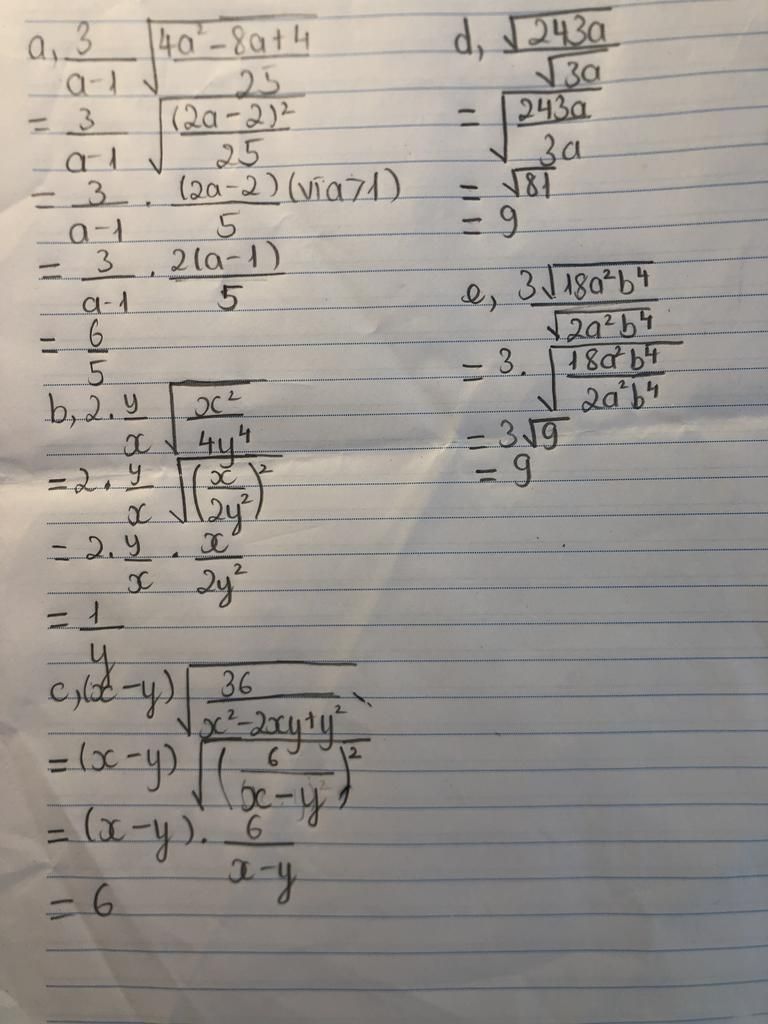 a, 3/(a-1) √((4a²-8a+4)/25)
= 3/(a-1) √((2a-2)²/25)
= 3/(a-1) . (2a-2)/5 (vì a>1)
= 3/(a-1) . 2(a-1)/5
= 6/5
b, 2. y/x √(x²/4y⁴)
= 2. y/x √((x/2y²)²)
= 2. y/x . x/2y²
= 1/y
c, (x-y) √(36/(x²-2xy+y²))
= (x-y) √((6/(x-y))²)
= (x-y) . 6/(x-y)
= 6
d, √243a/√3a
= √(243a/3a)
= √81
= 9
e, 3√18a²b⁴/√2a²b⁴
= 3. √(18a²b⁴/2a²b⁴)
= 3√9
= 9